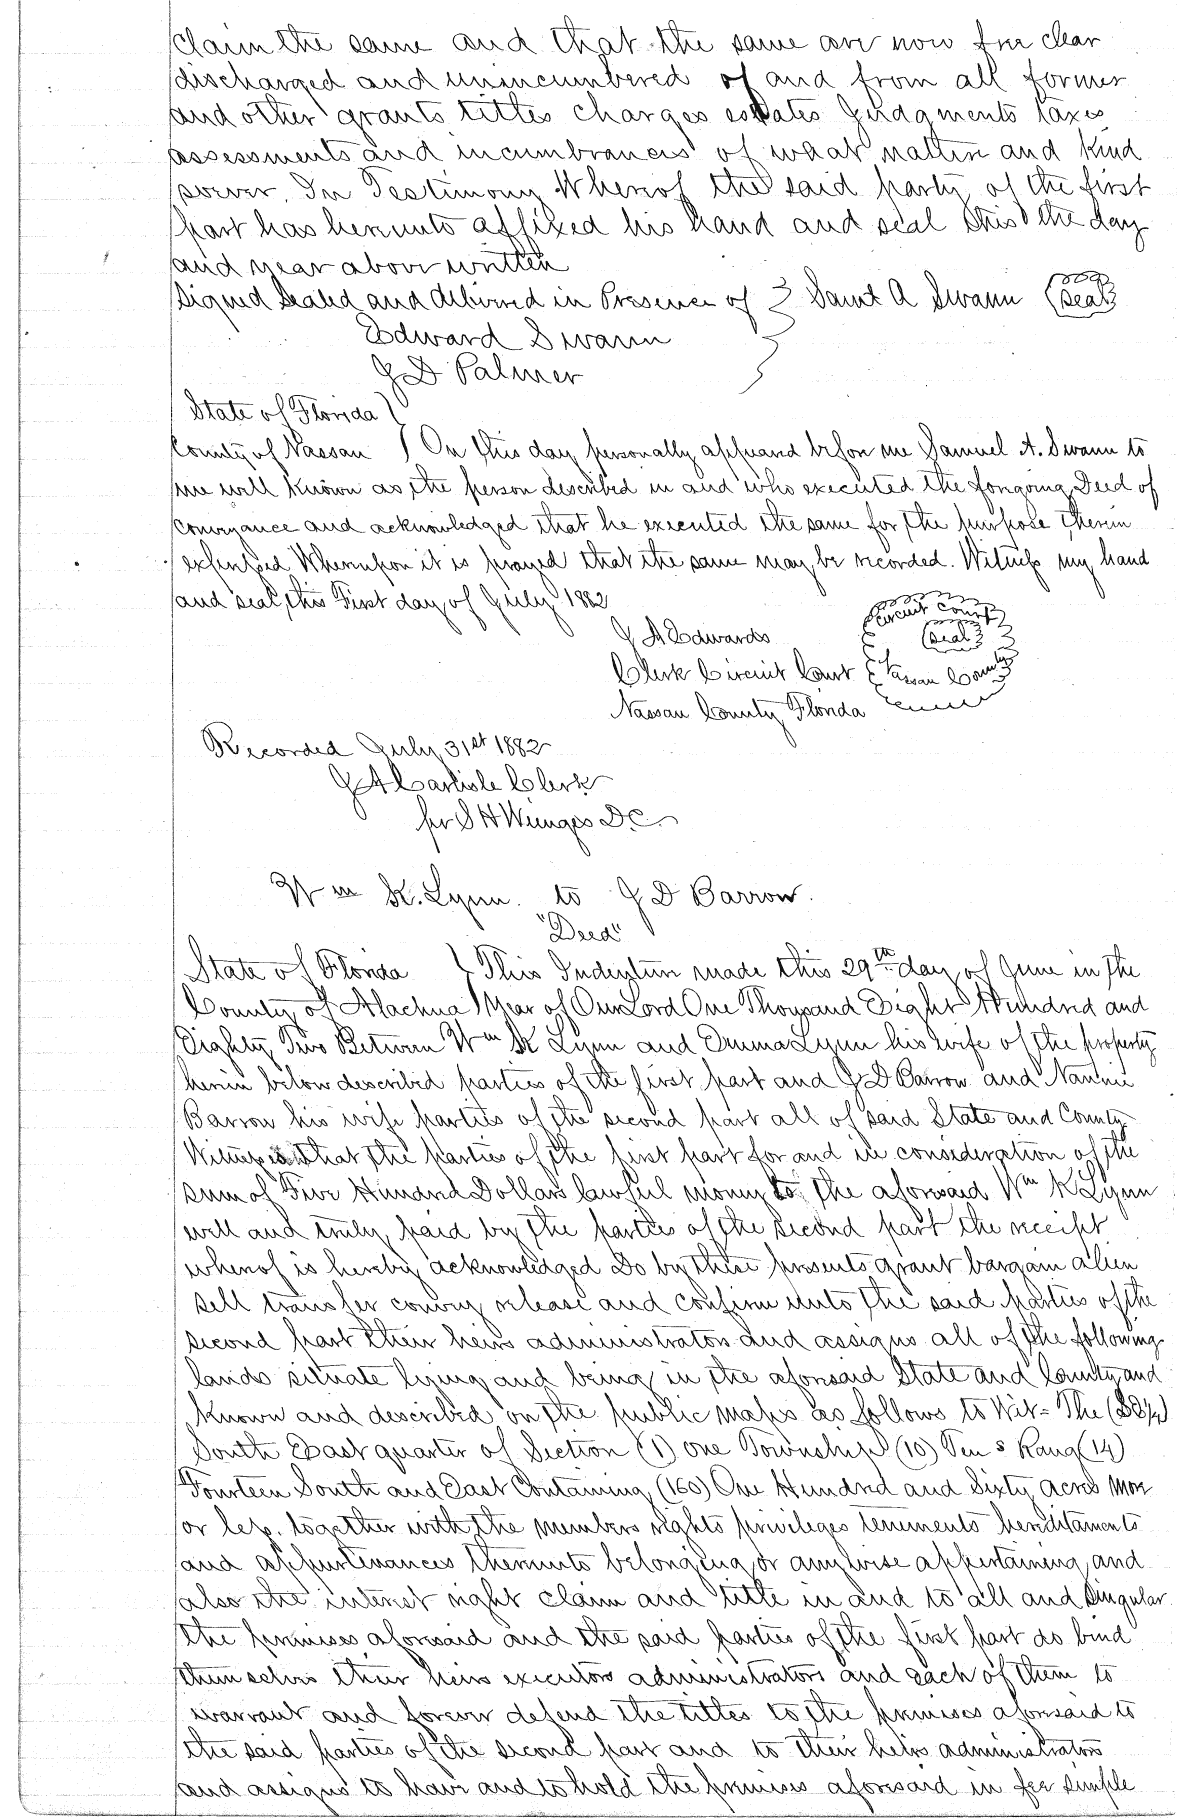 claim the same and that the same are now free clear
discharged and unincumbered of and from all former
and other grants titles charges estates Judgments taxes
assessments and incumbrances of what natture and kind
soever. In Testimony Whereof the said party of the first
part has hereunto affixed his hand and seal this the day
and year above written
Signed Sealed and delivered in Presence of } Saml A Swann (Seal)
Edward Swann
J D Palmer
State of Florida }
County of Nassau } On this day personally appeared before me Samuel A. Swann to
me well known as the person described in and who executed the foregoing Deed of
Conveyance and acknowledged that he executed the same for the purpose therein
expressed Whereupon it is prayed that the same may be recorded. Witness my hand
and seal this First day of July 1882
J A Edwards
Clerk Circuit Court
Nassau County Florida
Circuit Court
Seal
Nassau County
Recorded July 31st 1882
J A Carlisle Clerk
pr S H Wienges D.C.
Wm K. Lynn. to J D Barrow.
"Deed"
State of Florida } This Indenture made this 29th day of June in the
County of Alachua } Year of Our Lord One Thousand Eight Hundred and
Eighty Two Between Wm K Lynn and Emma Lynn his wife of the property
herein below described parties of the first part and J D Barrow and Nannie
Barrow his wife parties of the second part all of said State and County
Witnesseth that the parties of the first part for and in consideration of the
sum of Five Hundred Dollars lawful money to the aforesaid Wm K Lynn
well and truly paid by the parties of the second part the receipt
whereof is hereby acknowledged Do by these presents grant bargain alien
sell transfer convey release and confirm unto the said parties of the
second part their heirs administrators and assigns all of the following
lands situate lying and being in the aforesaid State and County and
known and described on the public maps as follows to Wit= The (SE¼)
South East quarter of Section (1) one Township (10) Ten s Rang (14)
Fourteen South and East Containing (160) One Hundred and Sixty acres more
or less. together with the members rights privileges tenements hereditaments
and appurtenances thereunto belonging or anywise appertaining and
also the interest right claim and title in and to all and Singular
the premises aforesaid and the said parties of the first part do bind
themselves their heirs executors administrators and each of them to
warrant and forever defend the titles to the premises aforesaid to
the said parties of the second part and to their heirs administrators
and assigns to have and to hold the premises aforesaid in fee simple